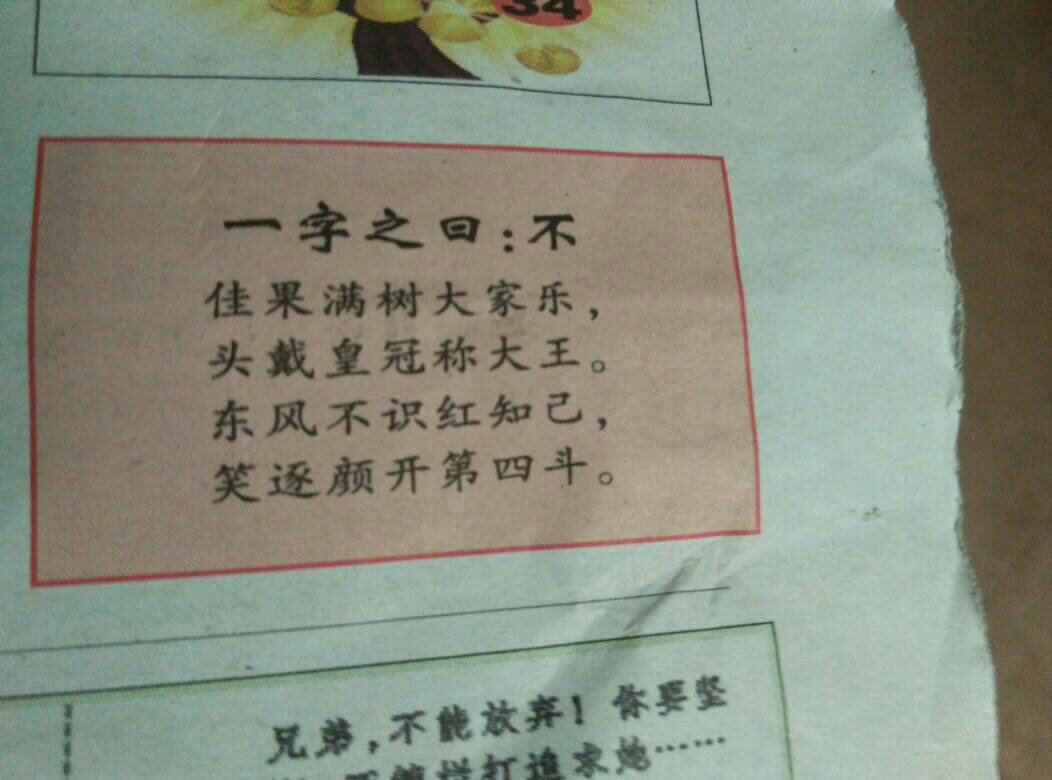 34
一字之曰:不
佳果满树大家乐,
头戴皇冠称大王。
东风不识红知己,
笑逐颜开第四斗。
兄弟,不能放弃!你要坚
打追求她……